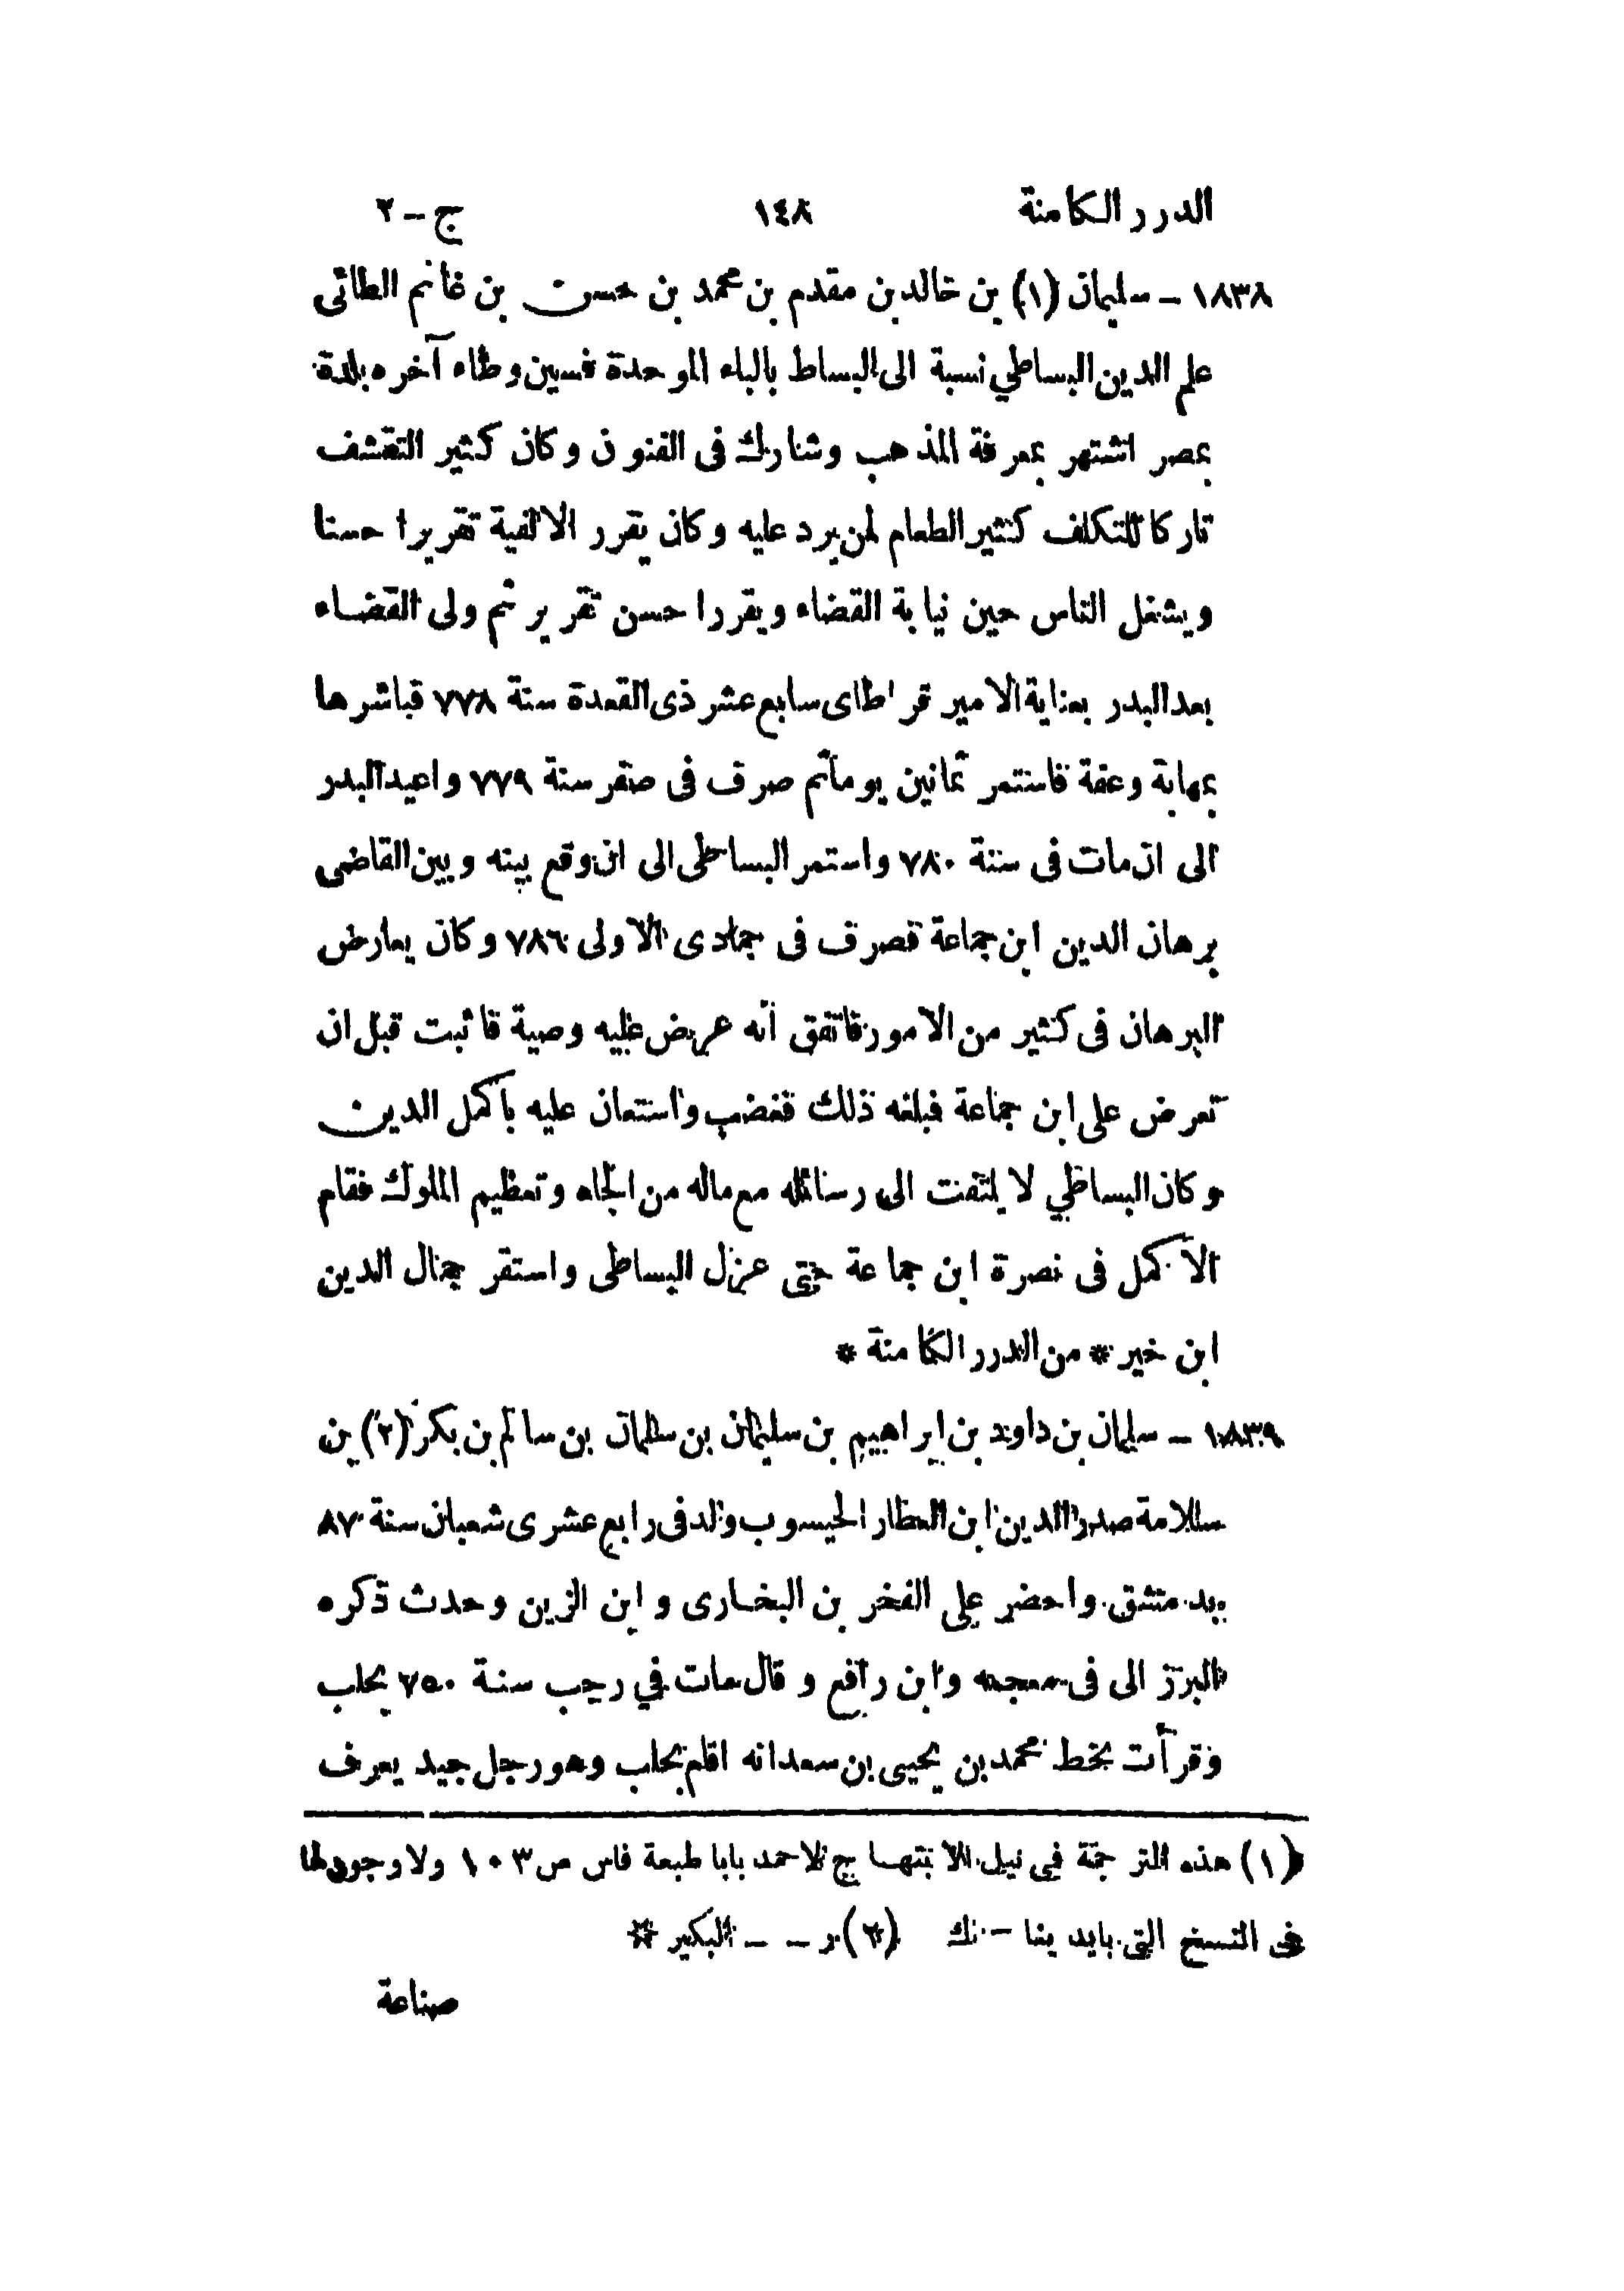 الدرر الكامنة ١٤٨ ج - ٢
١٨٣٨ - سليمان (١) بن خالد بن مقدم بن محمد بن حسن بن غانم الطائى
علم الدين البساطي نسبة الى البساط بالباء الموحدة فسين وطاء آخره بلدة
بمصر اشتهر بمعرفة المذهب وشارك فى الفنون وكان كثير التقشف
تاركا للتكلف كثير الطعام لمن يرد عليه وكان يقرر الالفية تقريرا حسنا
ويشغل الناس حين نيابة القضاء ويقررا حسن تقرير ثم ولى القضاء
بعد البدر بعناية الامير قراطاى سابع عشر ذى القعدة سنة ٧٧٨ فباشرها
بمهابة وعفة فاستمر ثمانين يوما ثم صرف فى صفر سنة ٧٧٩ واعيد البدر
الى ان مات فى سنة ٧٨٠ واستمر البساطى الى ان وقع بينه وبين القاضى
برهان الدين ابن جماعة فصرف فى جمادى الاولى ٧٨٦ وكان يعارض
البرهان فى كثير من الامور فاتفق انه عرض عليه وصية فاثبت قبل ان
تعرض على ابن جماعة فبلغه ذلك فغضب واستعان عليه باكمل الدين
وكان البساطي لا يلتفت الى رسائله مع ماله من الجاه وتعظيم الملوك فقام
الاكمل فى نصرة ابن جماعة حتى عزل البساطى واستقر جمال الدين
ابن خير * من الدرر الكامنة *
١٨٣٩ - سليمان بن داود بن ابراهيم بن سليمان بن سلمان بن سالم بن بكر (٢) بن
سلامة صدر الدين ابن العطار الحيسوب ولد فى رابع عشرى شعبان سنة ٨٧
بدمشق واحضر على الفخر بن البخارى وابن الزين وحدث ذكره
البرزالى فى معجمه وابن رافع وقال مات في رجب سنة ٧٥٠ بحلب
وقرأت بخط محمد بن يحيى بن سعد انه اقام بحلب وهو رجل جيد يعرف
(١) هذه الترجمة فى نيل الابتهاج لاحمد بابا طبعة فاس ص ١٠٣ ولا وجود لها
فى النسخ التى بايدينا - ك (٢) ر - - البكير *
صناعة